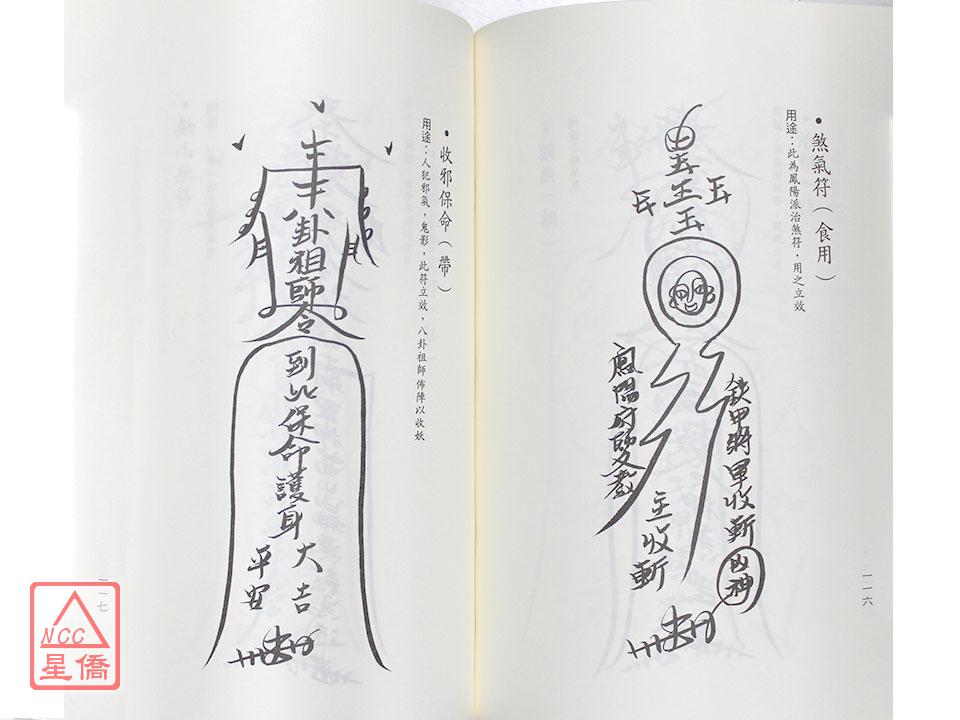 煞氣符（食用）
用途：此為鳳陽派治煞符，用之立效
鐵甲將軍收斬凶神
主收斬
鳳陽府師父敕
一一六
收邪保命（帶）
用途：人犯邪氣，鬼影，此符立效，八卦祖師佈陣以收妖
八卦祖師令
到此保命護身
大吉
平安
一一七
NCC
星僑